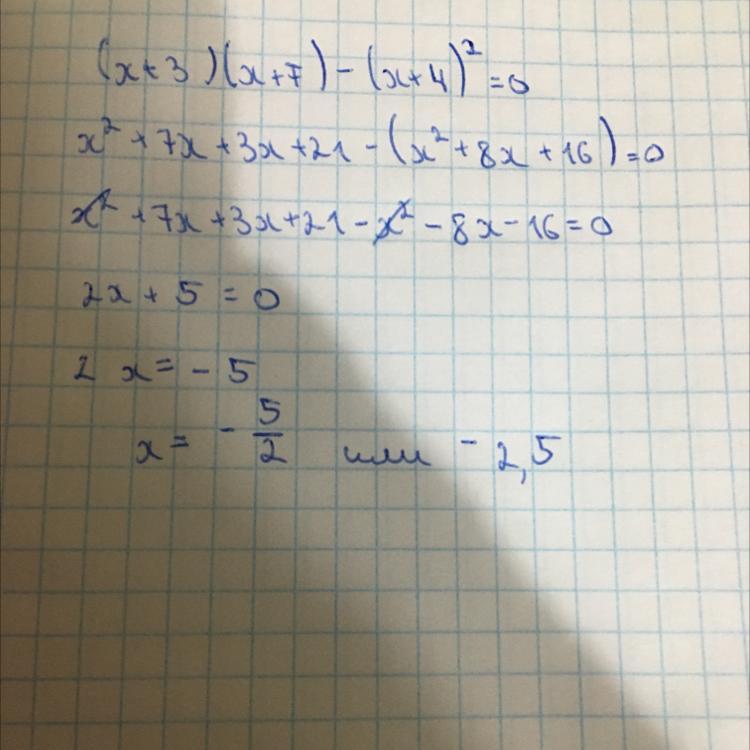 (x+3)(x+7)-(x+4)²=0
x²+7x+3x+21-(x²+8x+16)=0
x²+7x+3x+21-x²-8x-16=0
2x+5=0
2x=-5
x=-5/2 или -2,5